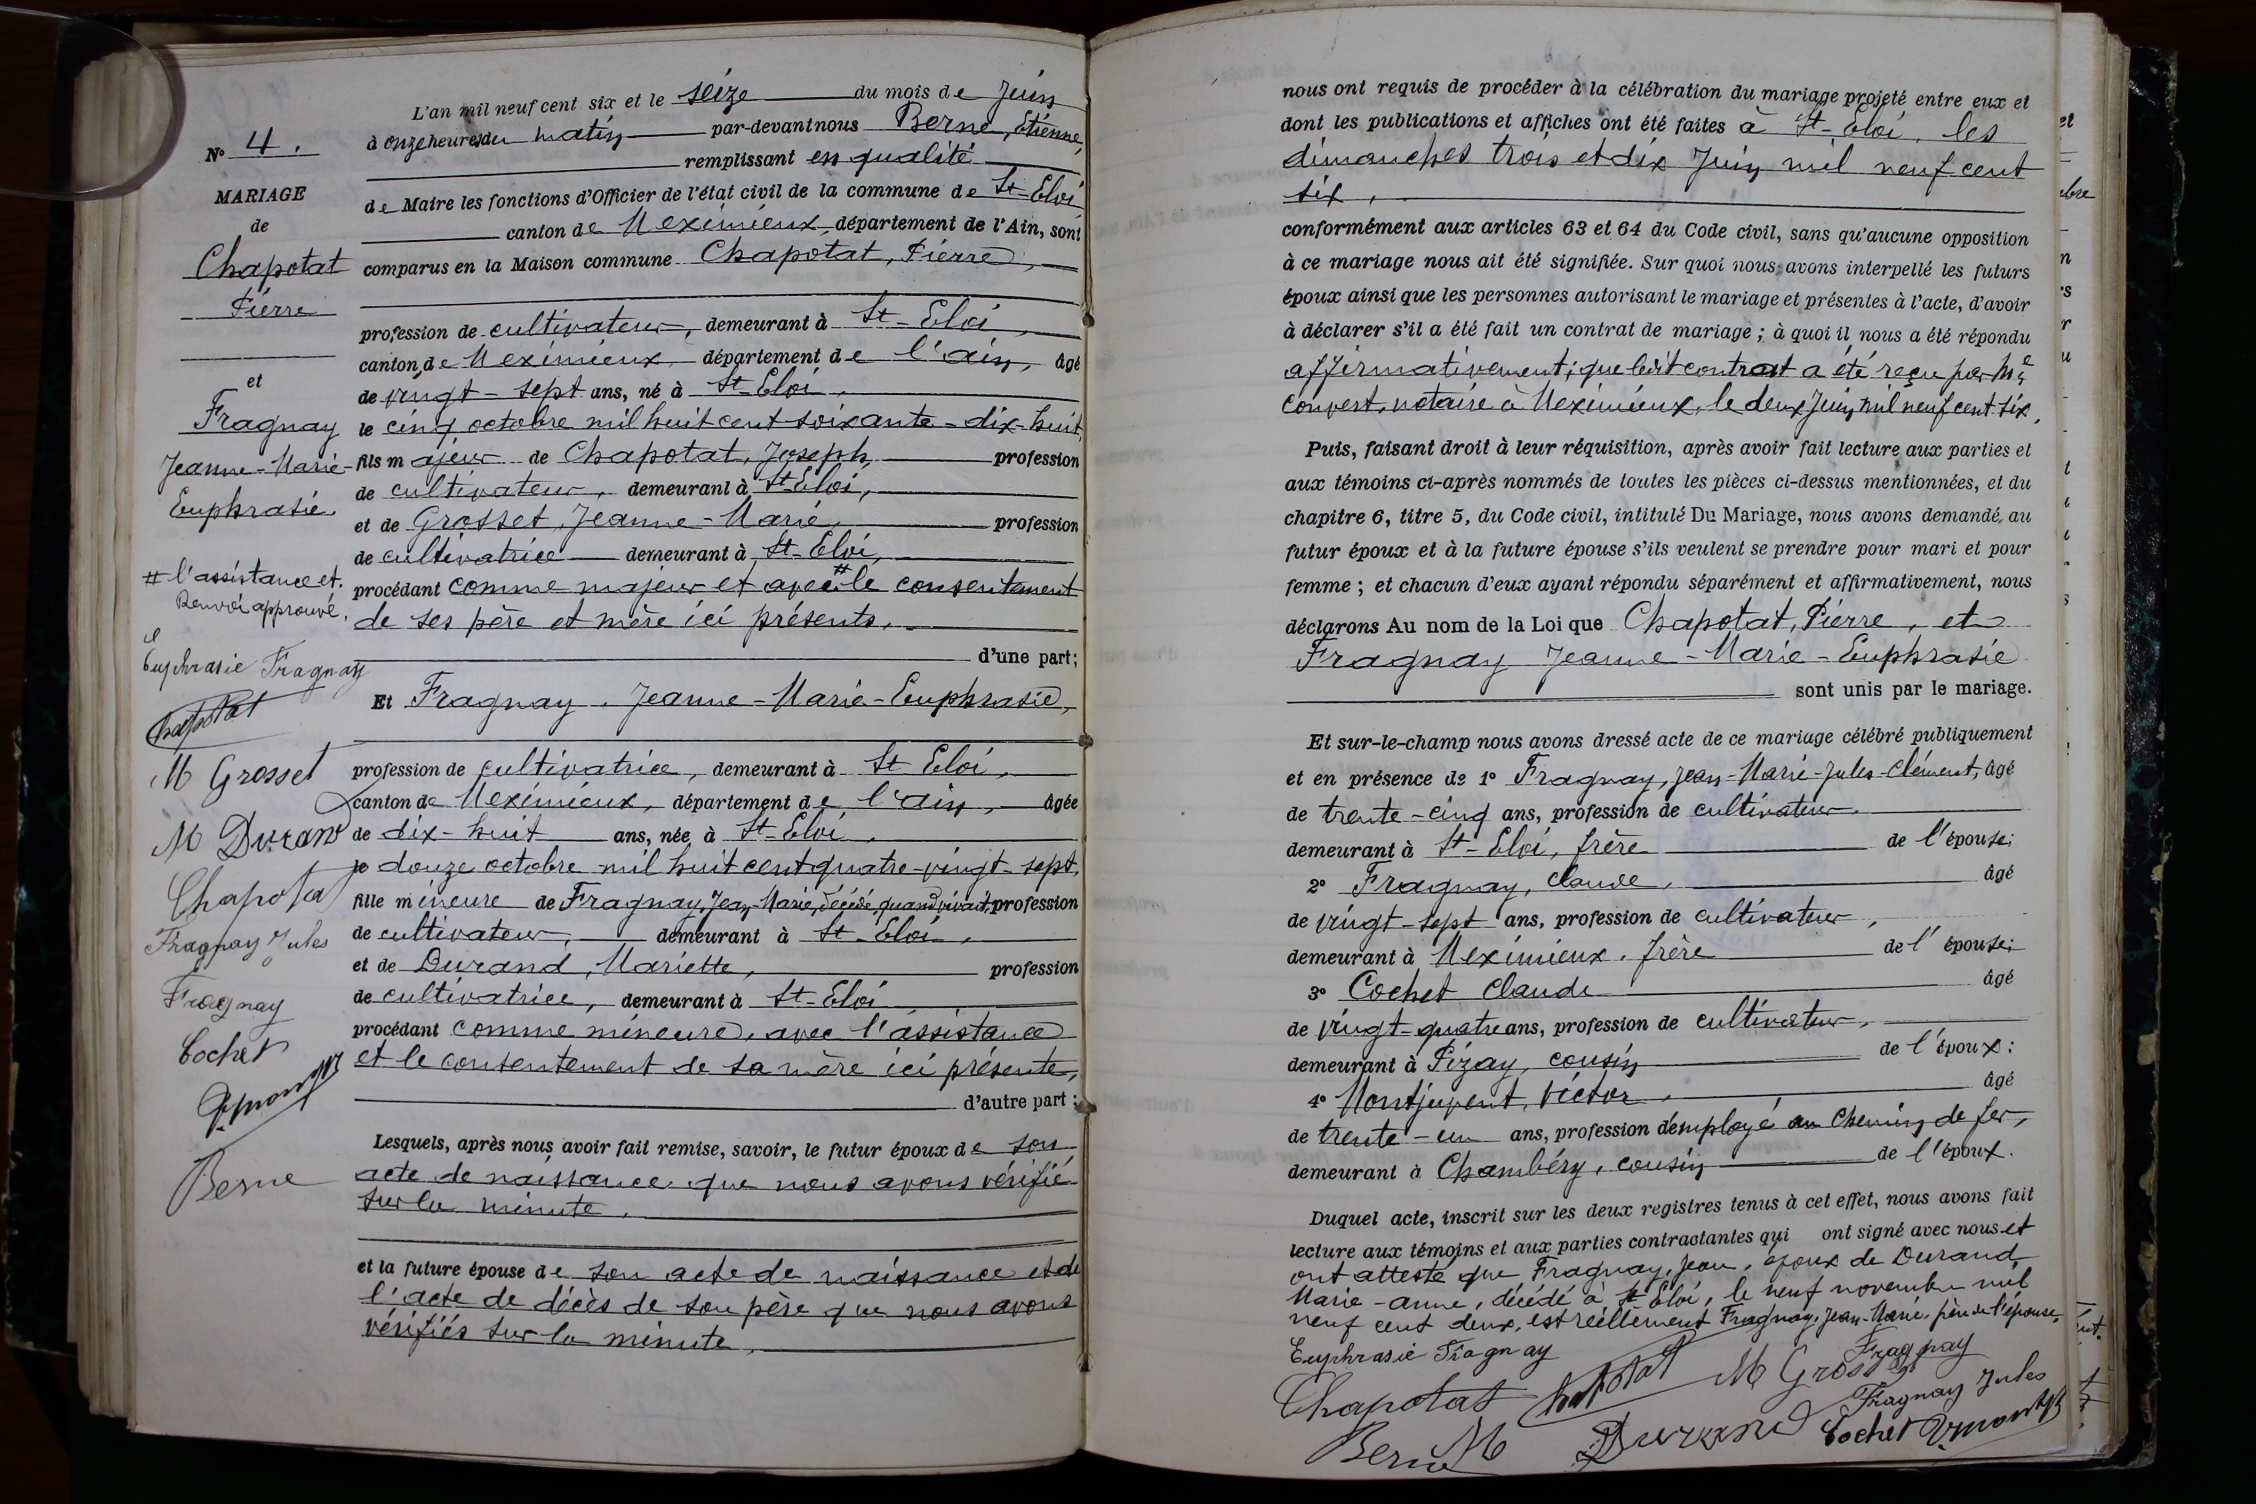 N° 4.
MARIAGE
de
Chapotat
Pierre
et
Fragnay
Jeanne-Marie-
Euphrasie.
# l'assistance et.
Renvoi approuvé.
Euphrasie Fragnay
Chapotat
M Grosset
M Durand
Chapotat
Fragnay Jules
Fragnay
Cochet
Berne
L'an mil neuf cent six et le seize du mois de Juin
à onze heures du matin par-devant nous Berne, Etienne,
remplissant en qualité
de Maire les fonctions d'Officier de l'état civil de la commune de St-Eloi
canton de Meximieux, département de l'Ain, sont
comparus en la Maison commune Chapotat, Pierre,
profession de cultivateur, demeurant à St-Eloi,
canton de Meximieux, département de l'ain, âgé
de vingt-sept ans, né à St-Eloi,
le cinq octobre mil huit cent soixante-dix-huit,
fils majeur de Chapotat, Joseph, profession
de cultivateur, demeurant à St-Eloi,
et de Grosset, Jeanne-Marie, profession
de cultivatrice demeurant à St-Eloi,
procédant comme majeur et avec # le consentement
de ses père et mère ici présents,
d'une part;
Et Fragnay, Jeanne-Marie-Euphrasie,
profession de cultivatrice, demeurant à St Eloi,
canton de Meximieux, département de l'ain, âgée
de dix-huit ans, née à St-Eloi,
le douze octobre mil huit cent quatre-vingt-sept,
fille mineure de Fragnay, Jean-Marie, décédé, quand vivait, profession
de cultivateur, demeurant à St-Eloi,
et de Durand, Mariette, profession
de cultivatrice, demeurant à St-Eloi
procédant comme mineure, avec l'assistance
et le consentement de sa mère ici présente,
d'autre part;
Lesquels, après nous avoir fait remise, savoir, le futur époux de son
acte de naissance que nous avons vérifié
sur la minute.
et la future épouse de son acte de naissance et de
l'acte de décès de son père que nous avons
vérifiés sur la minute,
nous ont requis de procéder à la célébration du mariage projeté entre eux et
dont les publications et affiches ont été faites à St-Eloi, les
dimanches trois et dix Juin mil neuf cent
six,
conformément aux articles 63 et 64 du Code civil, sans qu'aucune opposition
à ce mariage nous ait été signifiée. Sur quoi nous avons interpellé les futurs
époux ainsi que les personnes autorisant le mariage et présentes à l'acte, d'avoir
à déclarer s'il a été fait un contrat de mariage; à quoi il nous a été répondu
affirmativement; que ledit contrat a été reçu par Me
Convert, notaire à Meximieux, le deux Juin mil neuf cent six,
Puis, faisant droit à leur réquisition, après avoir fait lecture aux parties et
aux témoins ci-après nommés de toutes les pièces ci-dessus mentionnées, et du
chapitre 6, titre 5, du Code civil, intitulé Du Mariage, nous avons demandé au
futur époux et à la future épouse s'ils veulent se prendre pour mari et pour
femme; et chacun d'eux ayant répondu séparément et affirmativement, nous
déclarons Au nom de la Loi que Chapotat, Pierre, et
Fragnay Jeanne-Marie-Euphrasie
sont unis par le mariage.
Et sur-le-champ nous avons dressé acte de ce mariage célébré publiquement
et en présence de 1° Fragnay, Jean-Marie-Jules-Clément, âgé
de trente-cinq ans, profession de cultivateur,
demeurant à St-Eloi, frère de l'épouse;
2° Fragnay, Claude, âgé
de vingt-sept ans, profession de cultivateur,
demeurant à Meximieux, frère de l'épouse;
3° Cochet Claude âgé
de vingt-quatre ans, profession de cultivateur,
demeurant à Pizay, cousin de l'époux;
4° Montjuvent, Victor, âgé
de trente-un ans, profession d'employé au Chemin de fer,
demeurant à Chambéry, cousin de l'époux.
Duquel acte, inscrit sur les deux registres tenus à cet effet, nous avons fait
lecture aux témoins et aux parties contractantes qui ont signé avec nous et
ont attesté que Fragnay, Jean, époux de Durand
Marie-anne, décédé à St Eloi, le neuf novembre mil
neuf cent deux, est réellement Fragnay, Jean-Marie, père de l'épouse,
Euphrasie Fragnay
Fragnay
Chapotat Chapotat M Grosset
Fragnay Jules
Berne M Durand Cochet